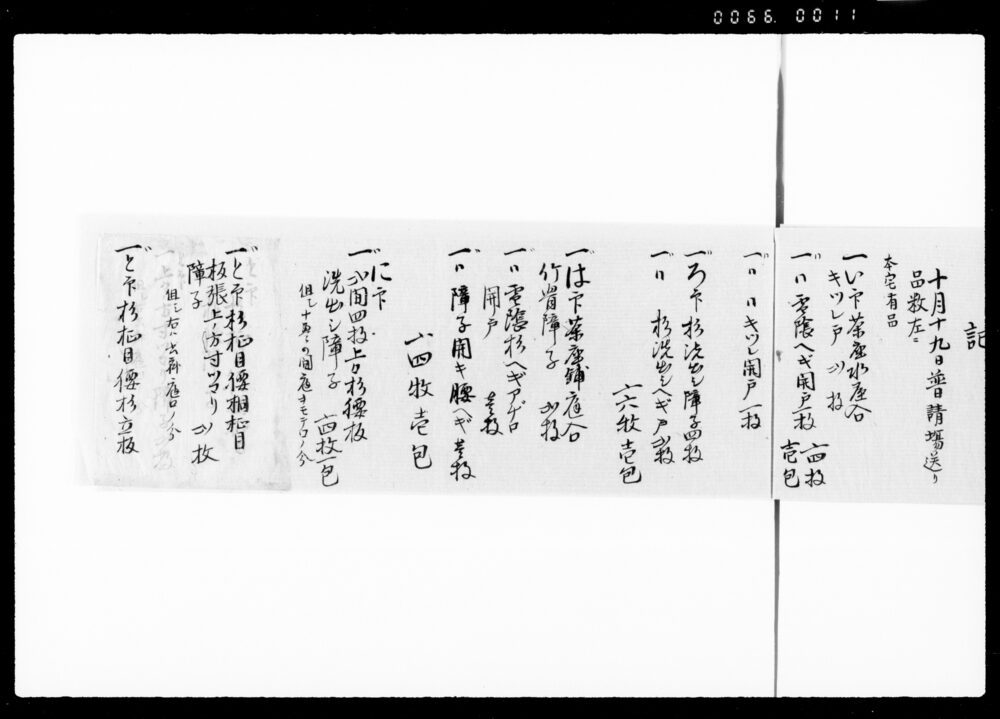 0066. 0011
記
十月十九日普請場送り
品数左ニ
本宅有品
一い印茶座水屋合
キツレ戸 弐枚
一〃雪隠ヘギ開戸一枚
〆四枚
壱包
一〃〃キツレ開戸一枚
一ろ印杉洗出シ障子四枚
一〃杉洗出シヘギ戸弐枚
〆六枚壱包
一は印茶座鋪庭合
竹骨障子 弐枚
一〃雪隠杉ヘギアゲロ
開戸 壱枚
一〃障子開キ腰ヘギ壱枚
〆四枚壱包
一に印
間四枚上り杉腰板
洗出シ障子 四枚一包
但シ十五
一と印杉柾目腰桐柾目
板張上ノ方寸ツマリ 弐枚
障子
一と印杉柾目腰杉立板